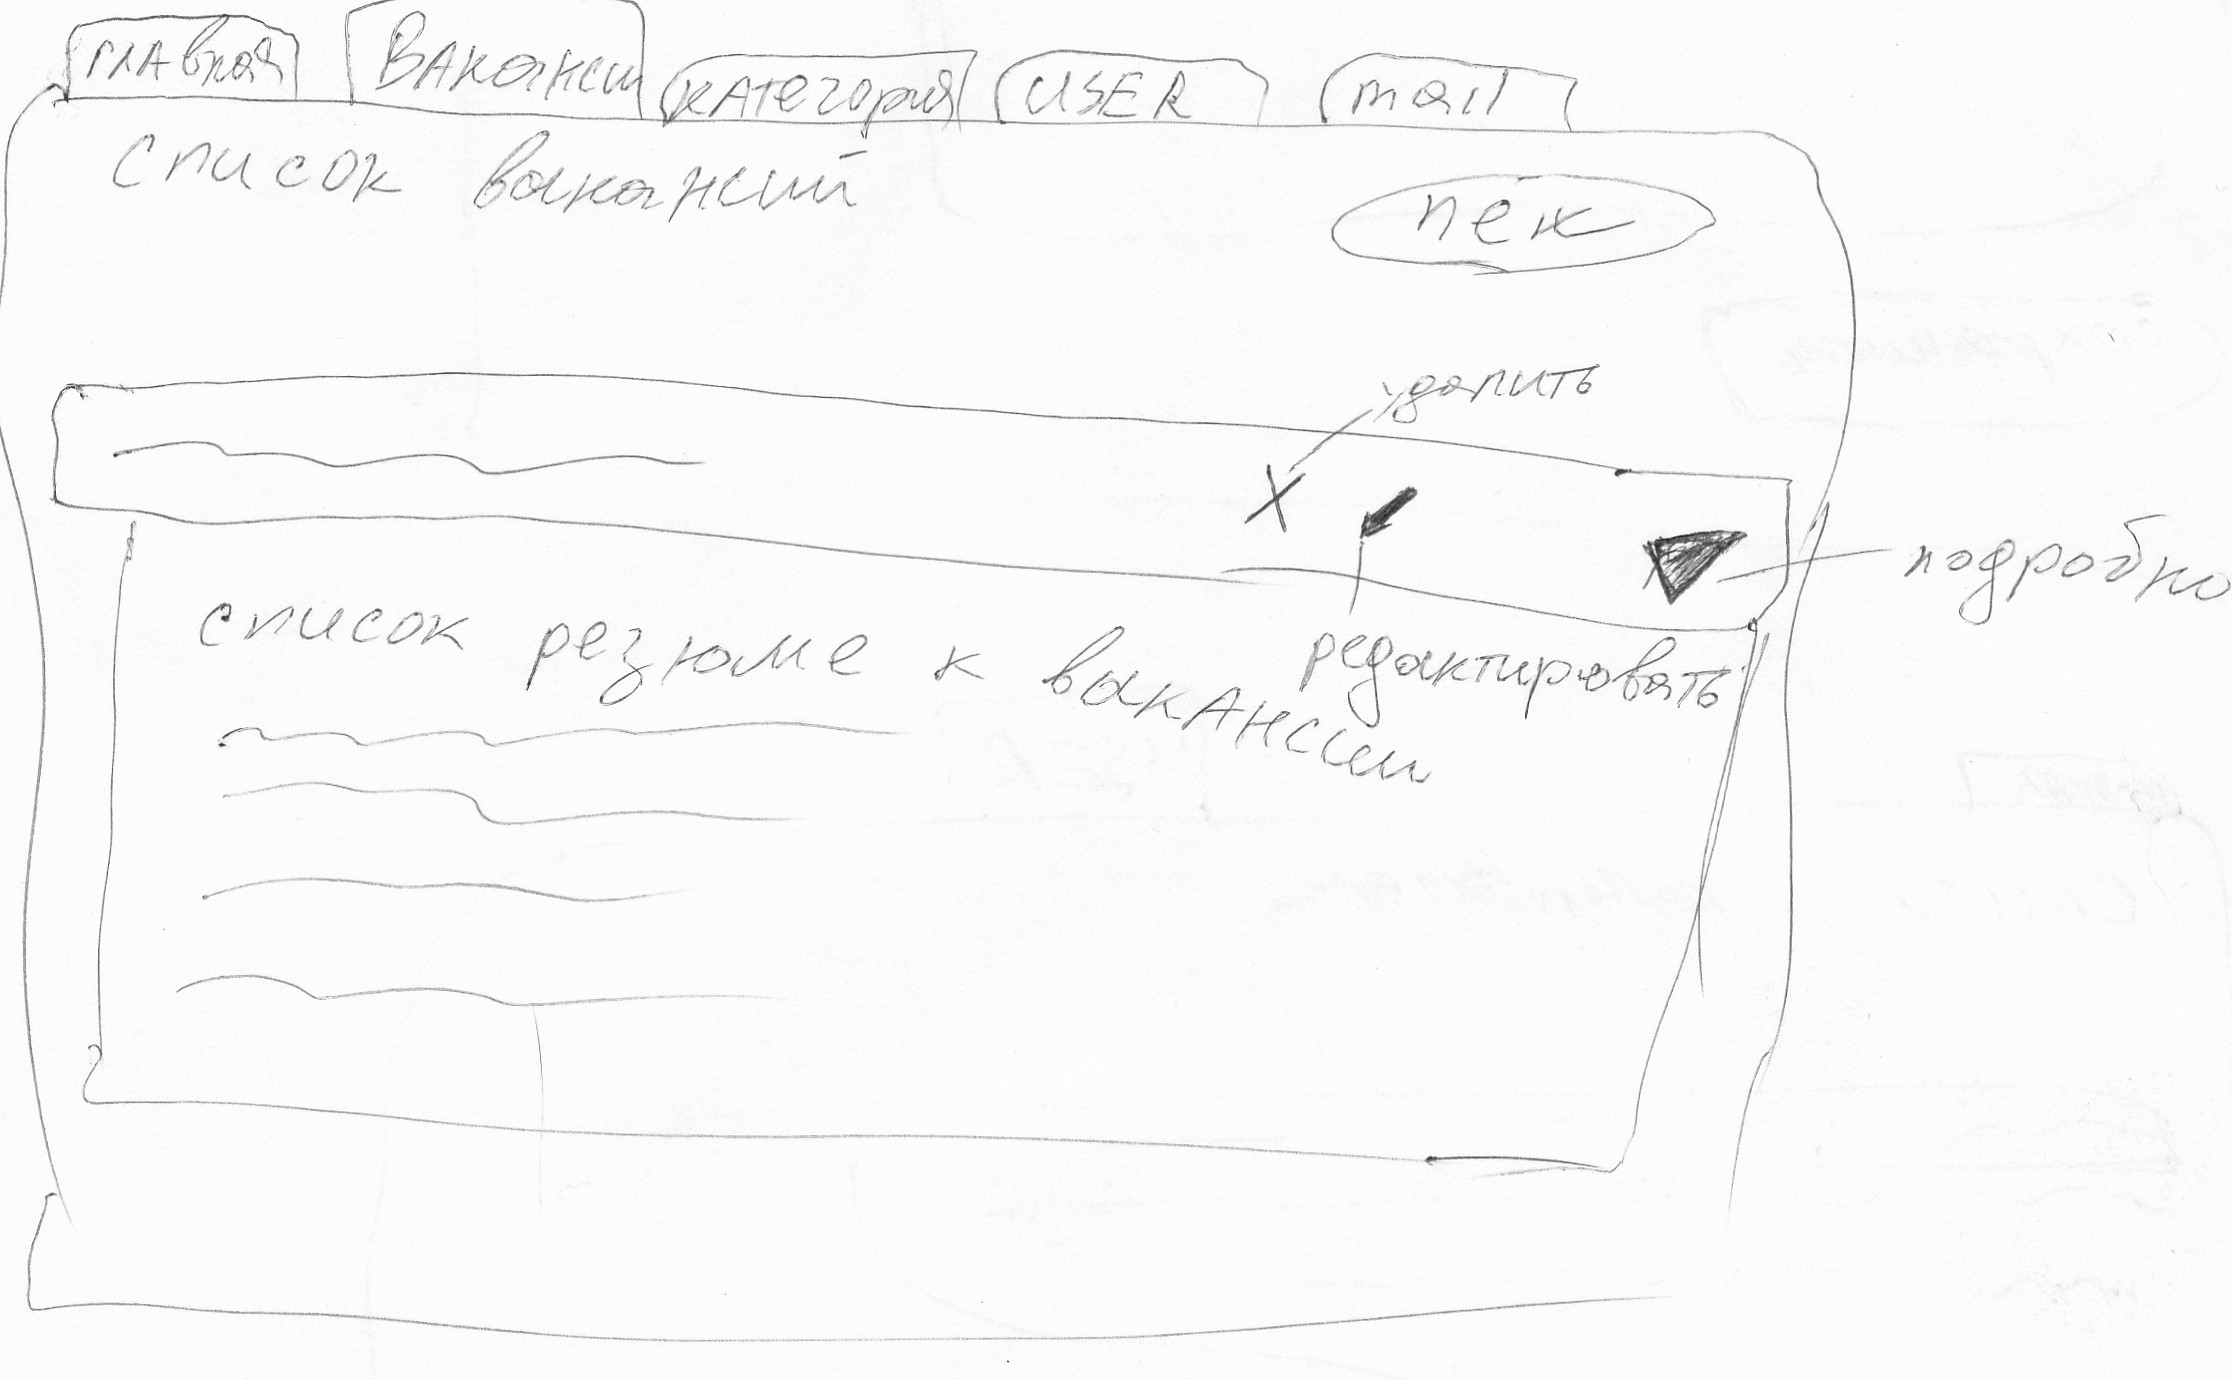 главная Вакансии категория USER mail
список вакансий
удалить
подробно
редактировать
список резюме к вакансии